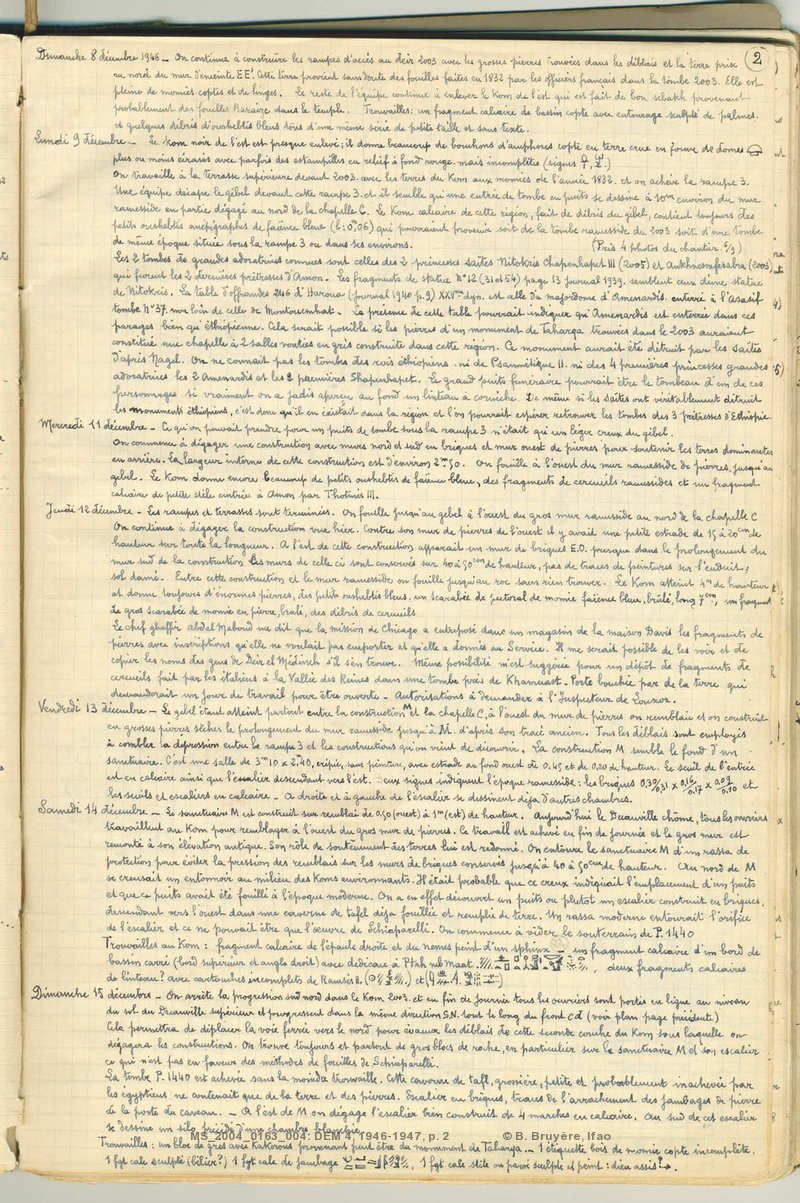 2
Dimanche 8 décembre 1946 - On continue à construire les rampes d'accès au deir 2003 avec les grosses pierres trouvées dans les déblais et la terre prise
au nord du mur d'enceinte EE'. Cette terre provient sans doute des fouilles faites en 1832 par les officiers français dans la tombe 2003. Elle est
pleine de momies coptes et de linges. Le reste de l'équipe continue à enlever le Kom de l'est qui est fait de bon sebakh provenant
probablement des fouilles Baraize dans le temple. Trouvailles: un fragment calcaire de bassin copte avec entourage sculpté de palmes.
et quelques débris d'oushebtis bleus tous d'une même série de petite taille et sans texte.
Lundi 9 décembre - Le Kom noir de l'est est presque enlevé; il donne beaucoup de bouchons d'amphores copte en terre crue en forme de dômes
plus ou moins écrasés avec parfois des estampilles en relief à fond rouge. mais incomplètes (signes
On travaille à la terrasse supérieure devant 2003. avec les terres du Kom aux momies de l'année 1832. et on achève la rampe 3.
Une équipe décape le gebel devant cette rampe 3. et il semble qu'une entrée de tombe en puits se dessine à 10m environ du mur
ramesside en partie dégagé au nord de la chapelle C. Le Kom calcaire de cette région, fait de débris du gebel, contient toujours des
petits oushebtis anépigraphes de faïence bleue (L: 0m,06) qui pourraient provenir soit de la tombe ramesside du 2003 soit d'une tombe
de même époque située sous la rampe 3 ou dans ses environs. (Pris 4 photos du chantier. 6/9)
Les 2 tombes de grandes adoratrices connues sont celles des 2 princesses saïtes Nitokris Chapenhapet III (2005) et Ankhnesneferabra (2003)
qui furent les 2 dernières prêtresses d'Amon. Les fragments de statue N°12 (31 et 54) page 13 journal 1939. semblent ceux d'une statue
de Nitokris. La table d'offrandes 246 d'Haroua (journal 1940 p.9) XXVme dyn. est celle du majordome d'Amenardis. enterré à l'Asasif
tombe N°37. non loin de celle de Montouemhat. La présence de cette table pourrait indiquer qu'Amenardis est enterrée dans ces
parages bien qu'éthiopienne. Cela serait possible si les pierres d'un monument de Taharqa trouvées dans le 2003 auraient
constitué une chapelle à 2 salles voutées en grès construite dans cette région. Ce monument aurait été détruit par les saïtes
d'après Nagel. On ne connait pas les tombes des rois éthiopiens. ni de Psammétique II. ni des 4 premières princesses grandes
adoratrices les 2 Amenardis et les 2 premières Shapenhapet. Le grand puits funéraire pourrait être le tombeau d'un de ces
personnages si vraiment on a jadis aperçu au fond un linteau à corniche. De même si les saïtes ont véritablement détruit
les monuments éthiopiens, c'est donc qu'il en existait dans la région et l'on pourrait espérer retrouver les tombes des 3 prêtresses d'Ethiopie.
Mercredi 11 décembre - Ce qu'on pouvait prendre pour un puits de tombe sous la rampe 3 n'était qu'un léger creux du gebel.
On commence à dégager une construction avec murs nord et sud en briques et mur ouest de pierres pour soutenir les terres dominantes
en arrière. La largeur interne de cette construction est d'environ 2m50. On fouille à l'ouest du mur ramesside de pierres, jusqu'au
gebel. Le Kom donne encore beaucoup de petits oushebtis de faïence bleue, des fragments de cercueils ramessides et un fragment
calcaire de petite stèle cintrée à Amon par Thotmès III.
Jeudi 12 décembre - Les rampes et terrasses sont terminées. On fouille jusqu'au gebel à l'ouest du gros mur ramesside au nord de la chapelle C
On continue à dégager la construction vue hier. Contre son mur de pierres de l'ouest il y avait une petite estrade de 15 à 20cm de
hauteur sur toute la longueur. A l'est de cette construction apparait un mur de briques E.O. presque dans le prolongement du
mur sud de la construction les murs de celle ci sont conservés sur 40 à 50cm de hauteur, pas de traces de peintures sur l'enduit;
sol damé. Entre cette construction et le mur ramesside on fouille jusqu'au roc sans rien trouver. Le Kom atteint 4m de hauteur
et donne toujours d'énormes pierres, des petits oushebtis bleus. un scarabée de pectoral de momie faïence bleue, brûlé, long 7cm, un fragment
de gros scarabée de momie en pierre, brûlé, des débris de cercueils
Le chef ghaffir Abd el Maboud me dit que la mission de Chicago a entreposé dans un magasin de la maison Davis les fragments de
pierres avec inscriptions qu'elle ne voulait pas emporter et qu'elle a donnés au Service. Il me serait possible de les voir et de
copier les noms des gens de Deir el Médineh s'il s'en trouve. Même possibilité m'est suggérée pour un dépôt de fragments de
cercueils fait par les italiens à la Vallée des Reines dans une tombe près de Khamuast. Porte bouchée par de la terre qui
demanderait un jour de travail pour être ouverte - Autorisations à demander à l'Inspecteur de Louxor.
Vendredi 13 décembre - Le gebel étant atteint partout entre la construction M et la chapelle C, à l'ouest du mur de pierres on remblaie et on construit
en grosses pierres sèches le prolongement du mur ramesside jusqu'à M. d'après son tracé ancien. Tous les déblais sont employés
à combler la dépression entre la rampe 3 et les constructions qu'on vient de découvrir. La construction M semble le fond d'un
sanctuaire. C'est une salle de 3m10 x 2m40, crépie, sans peinture, avec estrade au fond ouest de 0.45 et de 0.20 de hauteur. Le seuil de l'entrée
est en calcaire ainsi que l'escalier descendant vers l'est. Deux signes indiquent l'époque ramesside: les briques 0,30/0,31 x 0,16/0,17 x 0,09/0,10 et
les seuils et escaliers en calcaire - A droite et à gauche de l'escalier se dessinent déjà d'autres chambres.
Samedi 14 décembre - Le sanctuaire M est construit sur remblai de 0,50 (ouest) à 1m (est) de hauteur. Aujourd'hui le Decauville chôme, tous les ouvriers
travaillent au Kom pour remblayer à l'ouest du gros mur de pierres. Le travail est achevé en fin de journée et le gros mur est
remonté à son élévation antique. Son rôle de soutènement des terres lui est redonné. On entoure le sanctuaire M d'un rassa de
protection pour éviter la pression des remblais sur les murs de briques conservés jusqu'à 40 à 50cm de hauteur. Au nord de M
se creusait un entonnoir au milieu des Koms environnants. Il était probable que ce creux indiquait l'emplacement d'un puits
et que ce puits avait été fouillé à l'époque moderne. On a en effet découvert un puits ou plutôt un escalier construit en briques,
descendant vers l'ouest dans une caverne de tafel déjà fouillée et remplie de terre. Un rassa moderne entourait l'orifice
de l'escalier et ce ne pouvait être que l'œuvre de Schiaparelli. On commence à vider le souterrain de P. 1440
Trouvailles au Kom: fragment calcaire de l'épaule droite et du nemes peint d'un sphinx - un fragment calcaire d'un bord de
bassin carré (bord supérieur et angle droit) avec dédicace à Ptah neb Maat. , deux fragments calcaires
de linteau? avec cartouches incomplets de Ramsès II. et
Dimanche 15 décembre - On arrête la progression sud nord dans le Kom 2003. et en fin de journée tous les ouvriers sont portés en ligne au niveau
du sol du Decauville supérieur et progressent dans la même direction S.N. tout le long du front cd (voir plan page précédente)
Cela permettra de déplacer la voie ferrée vers le nord pour évacuer les déblais de cette seconde couche du Kom sous laquelle on
dégagera les constructions. On trouve toujours et partout de gros blocs de roche, en particulier sur le sanctuaire M et son escalier
ce qui n'est pas en faveur des méthodes de fouilles de Schiaparelli.
La tombe P. 1440 est achevée sans la moindre trouvaille. Cette caverne de tafl, grossière, petite et probablement inachevée par
les égyptiens ne contenait que de la terre et des pierres. Escalier en briques, traces de l'arrachement des jambages de pierre
de la porte du caveau. - A l'est de M on dégage l'escalier bien construit de 4 marches en calcaire. Au sud de cet escalier
se dessine un silo précédé d'une chambre blanchie.
Trouvailles: un bloc de grès avec Kakerous provenant peut être du monument de Taharqa. - 1 étiquette bois de momie copte incomplète.
1 fgt calc sculpté (bélier?) 1 fgt calc de jambage , 1 fgt calc stèle ou paroi sculpté et peint: dieu assis
MS_2004_0163_004: DEM 4, 1946-1947, p. 2 © B. Bruyère, Ifao